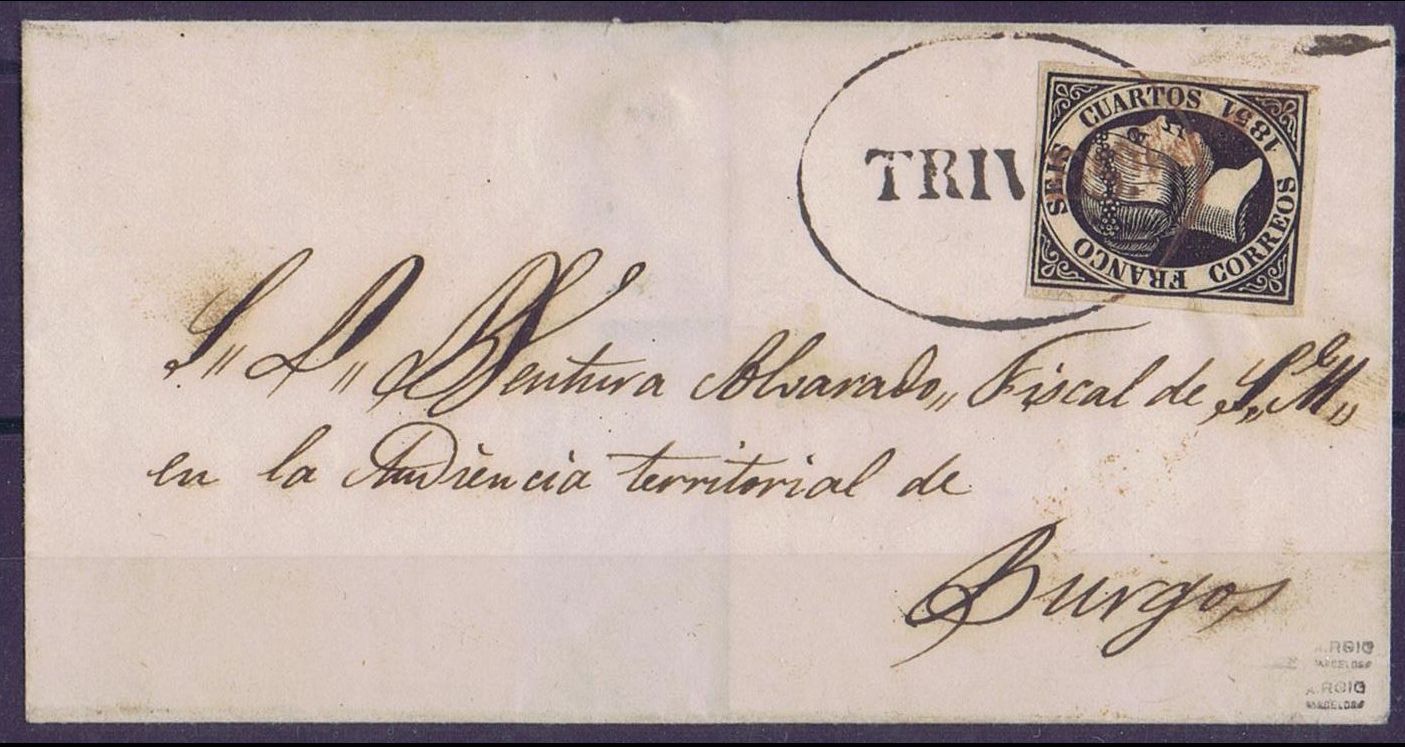 TRIV
SEIS CUARTOS 1851
FRANCO CORREOS
S,, D,, Ventura Alvarado,, Fiscal de S,,M,,
en la Audiencia territorial de
Burgos
A.ROIG
BARCELONA
A.ROIG
BARCELONA